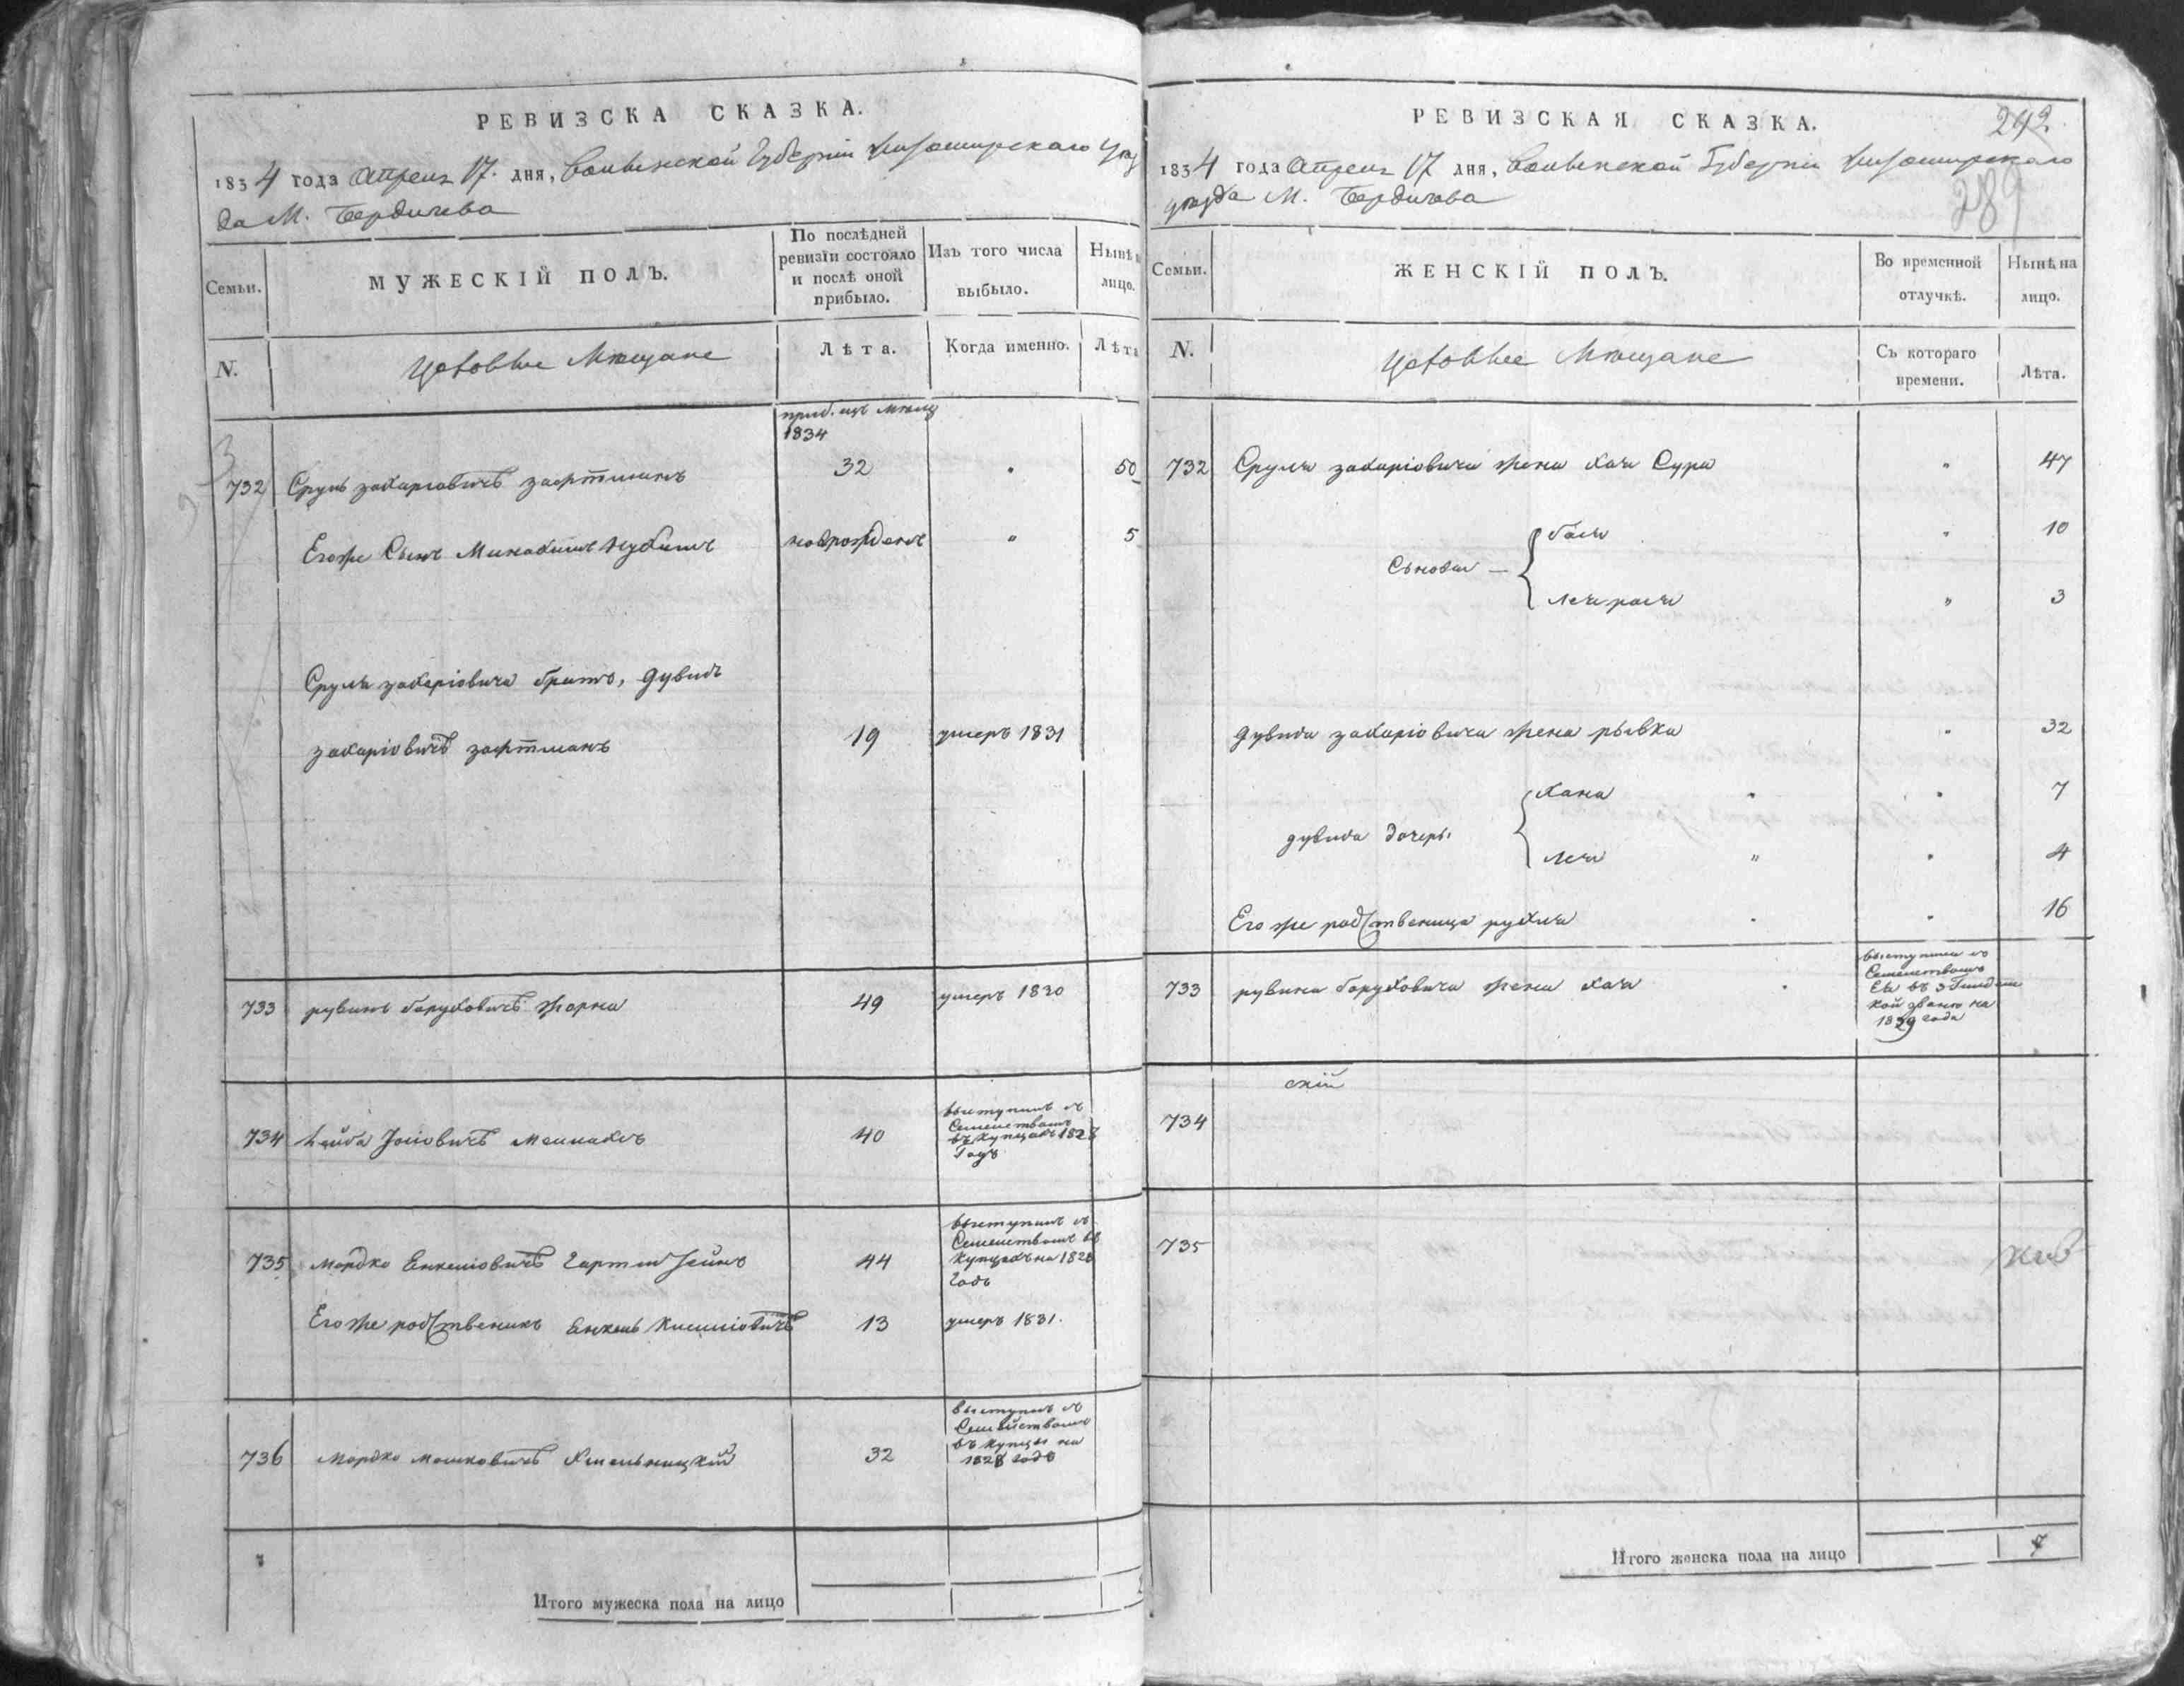 РЕВИЗСКА СКАЗКА.
1834 года Апреля 17. дня, Волынской Губерніи Житомирскаго уѣз
да М. Бердичева
Семьи.
МУЖЕСКІЙ ПОЛЪ.
По послѣдней
ревизіи состояло
и послѣ оной
прибыло.
Изъ того числа
выбыло.
Нынѣ н
лицо.
N.
Цеховые Мѣщане
Лѣта.
Когда именно.
Лѣта
приб. изъ мѣщ
1834
732 Сруль Захаріовичъ Зафтманъ 32 " 50
Егоже Сынъ Нухимъ новорожденъ " 5
Сруля Захаріовича братъ, Дувидъ
Захаріовичъ Зафтманъ 19 умеръ 1831
733 Рувинъ Боруховичъ Жорна 49 умеръ 1830
734 Лейба Іосіовичъ 40 выступилъ съ
Семействомъ
въ купцахъ 1828
Годъ
735 Мордко Енкеліовичъ 44 выступилъ съ
Семействомъ въ
Купцахъ на 1828
Годъ
Егоже родственикъ Енкель 13 умеръ 1831.
736 Мордко Мошковичъ Хмельницкій 32 выступилъ съ
Семействомъ
въ купцы на
1828 годъ
Итого мужеска пола на лицо
РЕВИЗСКАЯ СКАЗКА.
292.
289
1834 года Апреля 17 дня, Волынской Губерніи Житомирскаго
уѣзда М. Бердичева
Семьи.
ЖЕНСКІЙ ПОЛЪ.
Во временной
отлучкѣ.
Нынѣ на
лицо.
N.
Цеховые Мѣщане
Съ котораго
времени.
Лѣта.
732 Сруля Захаріовича жена Хая Сура " 47
Бася " 10
3
Дувида Захаріовича жена Рывка " 32
Хана " " 7
Дувида дочеры
Лея " " 4
Его же родственица Рухля " " 16
733 Рувина Боруховича жена Хая
выступила съ
Семействомъ
1829 года
734
скій
735
736
Итого женска пола на лицо
7